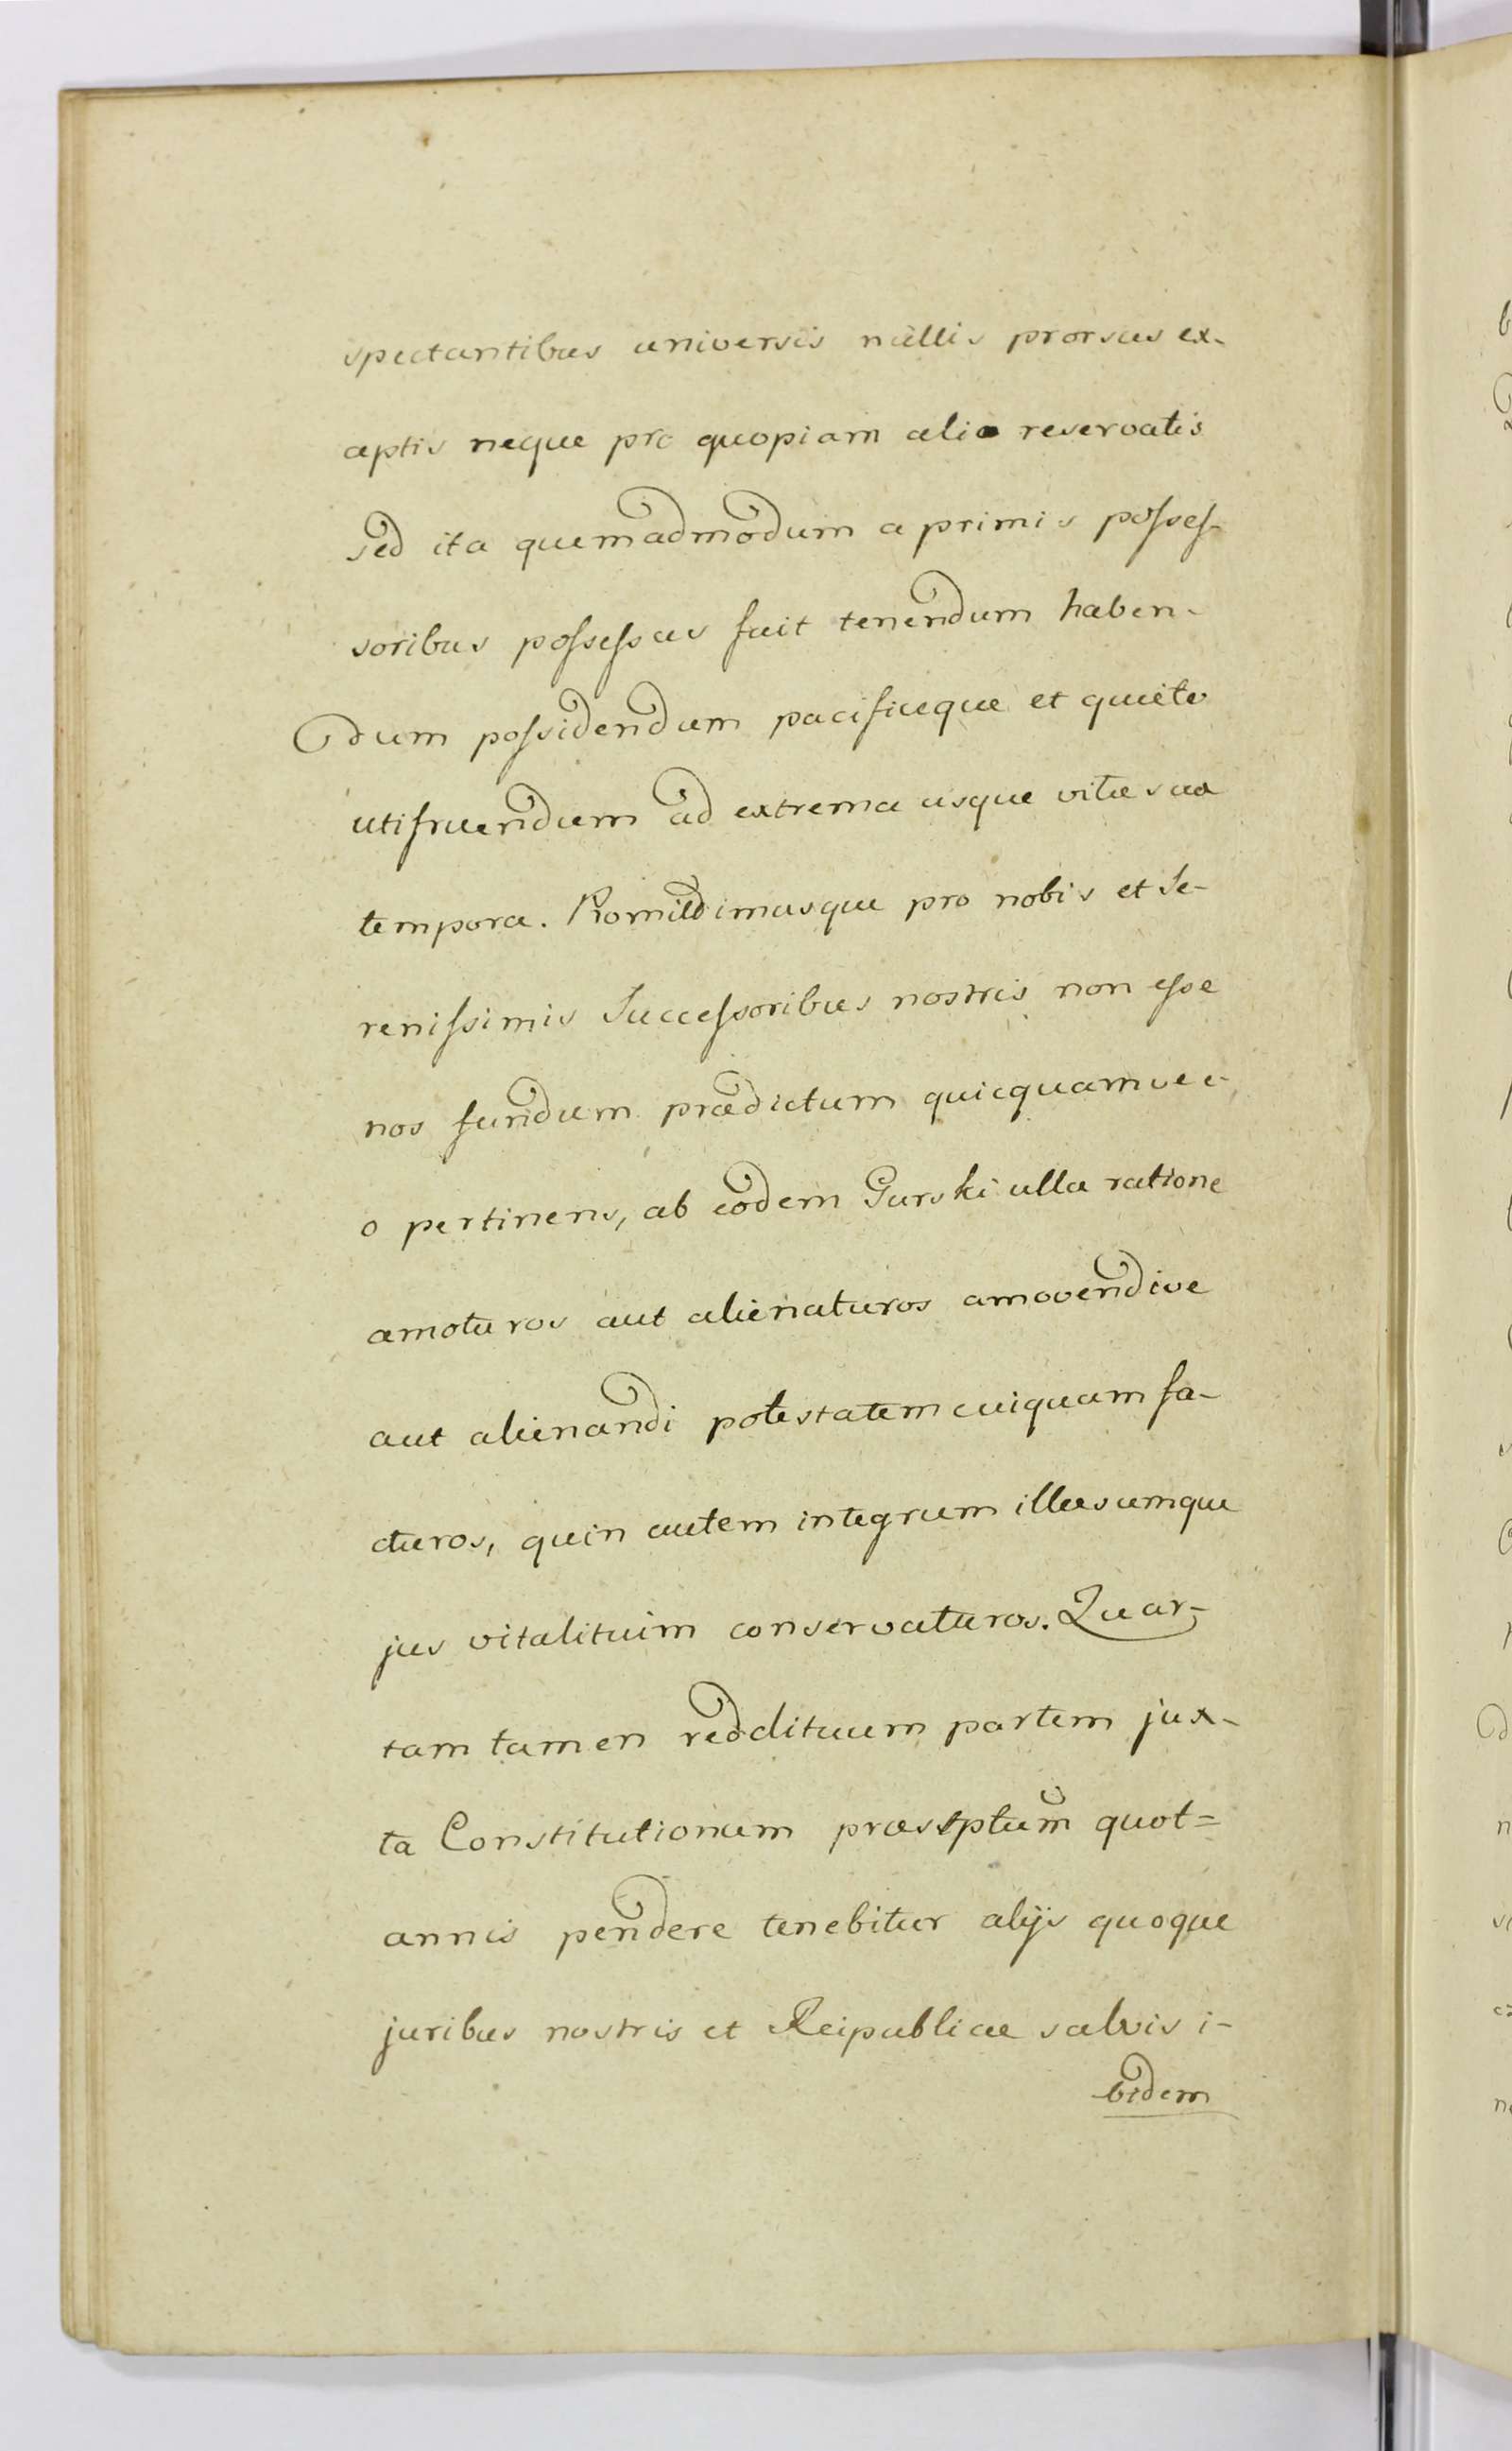 spectantibus universis nullis prorsus ex-
ceptis neque pro quopiam alio reservatis
sed ita quemadmodum a primis posses-
soribus possessus fuit tenendum haben-
dum possidendum pacificeque et quiete
utifruendum ad extrema usque vitæ suæ
tempora. Promittimusque pro nobis et Se-
renissimis Successoribus nostris non esse
nos fundum prædictum quicquamve e-
o pertinens, ab eodem Gurski ulla ratione
amoturos aut alienaturos amovendive
aut alienandi potestatem cuiquam fa-
cturos, quin autem integrum illæsumque
jus vitalituim conservaturos. Quar-
tam tamenreddituum partem jux-
ta Constitutionum præsptum quot=
annis pendere tenebitur alijs quoque
juribus nostris et Reipublicæ salvis i-
bidem